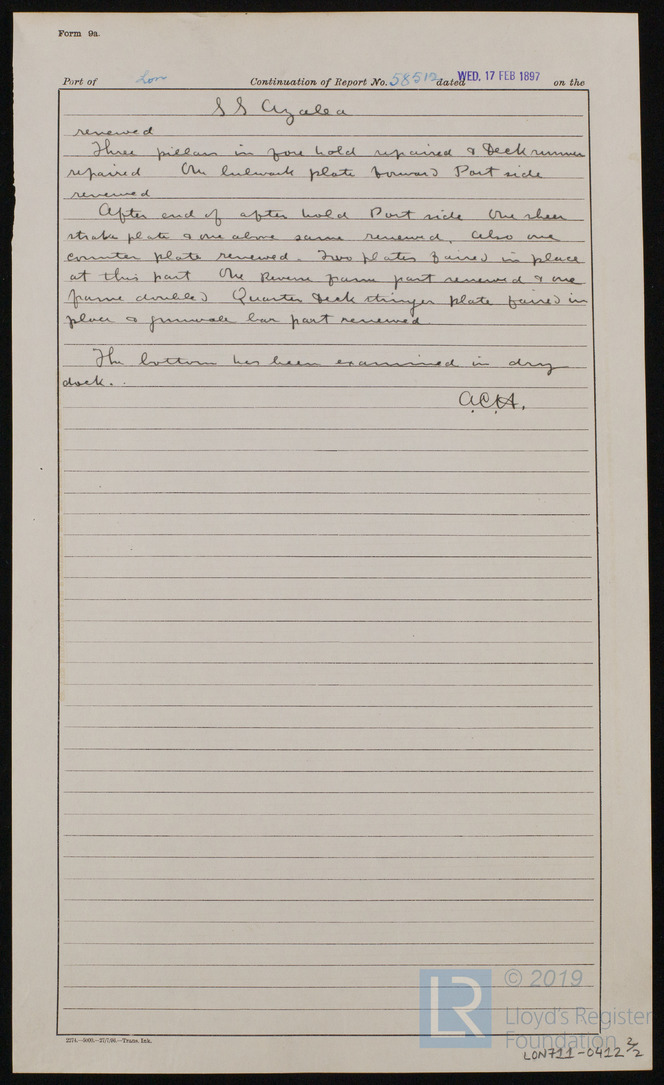 Form 9a.
Port of Lon Continuation of Report No. 58512 dated WED, 17 FEB 1897 on the
SS Azalea
renewed
Three pillars in fore hold repaired & Deck runner
repaired One bulwark plate forward Port side
renewed
After end of after hold Port side One sheer
strake plate & one above same renewed, also one
counter plate renewed. Two plates faired in place
at this part One Reverse frame part renewed & one
frame doubled Quarter Deck stringer plate faired in
place & gunwale bar part renewed
The bottom has been examined in dry
dock.
A.C.H.
LR © 2019
Lloyd's Register
Foundation
2274.—5000.—27/7/96.—Trans. Ink.
LON711-0412 2/2